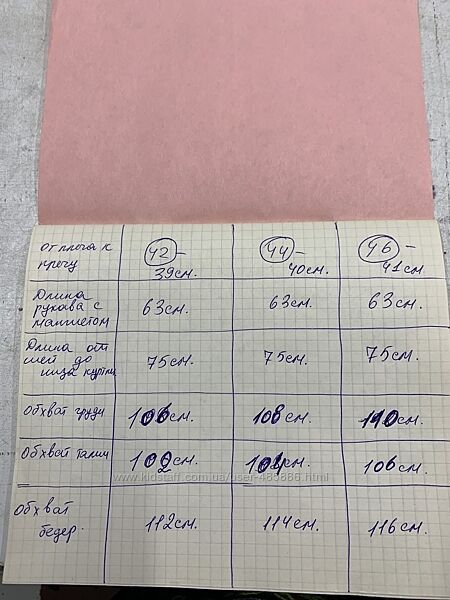 от плеча к
плечу
42 –
39см.
44 –
40см.
46 –
41см
Длина
рукава с
манжетом
63см.
63см.
63см.
Длина от
шеи до
низа куртки
75см.
75см.
75см.
Обхват груди
106см.
108см.
110см.
Обхват талии
102см.
104см.
106см.
© kidstaff.com.ua/user-485686.html
Обхват
бедер.
112см.
114см.
116см.